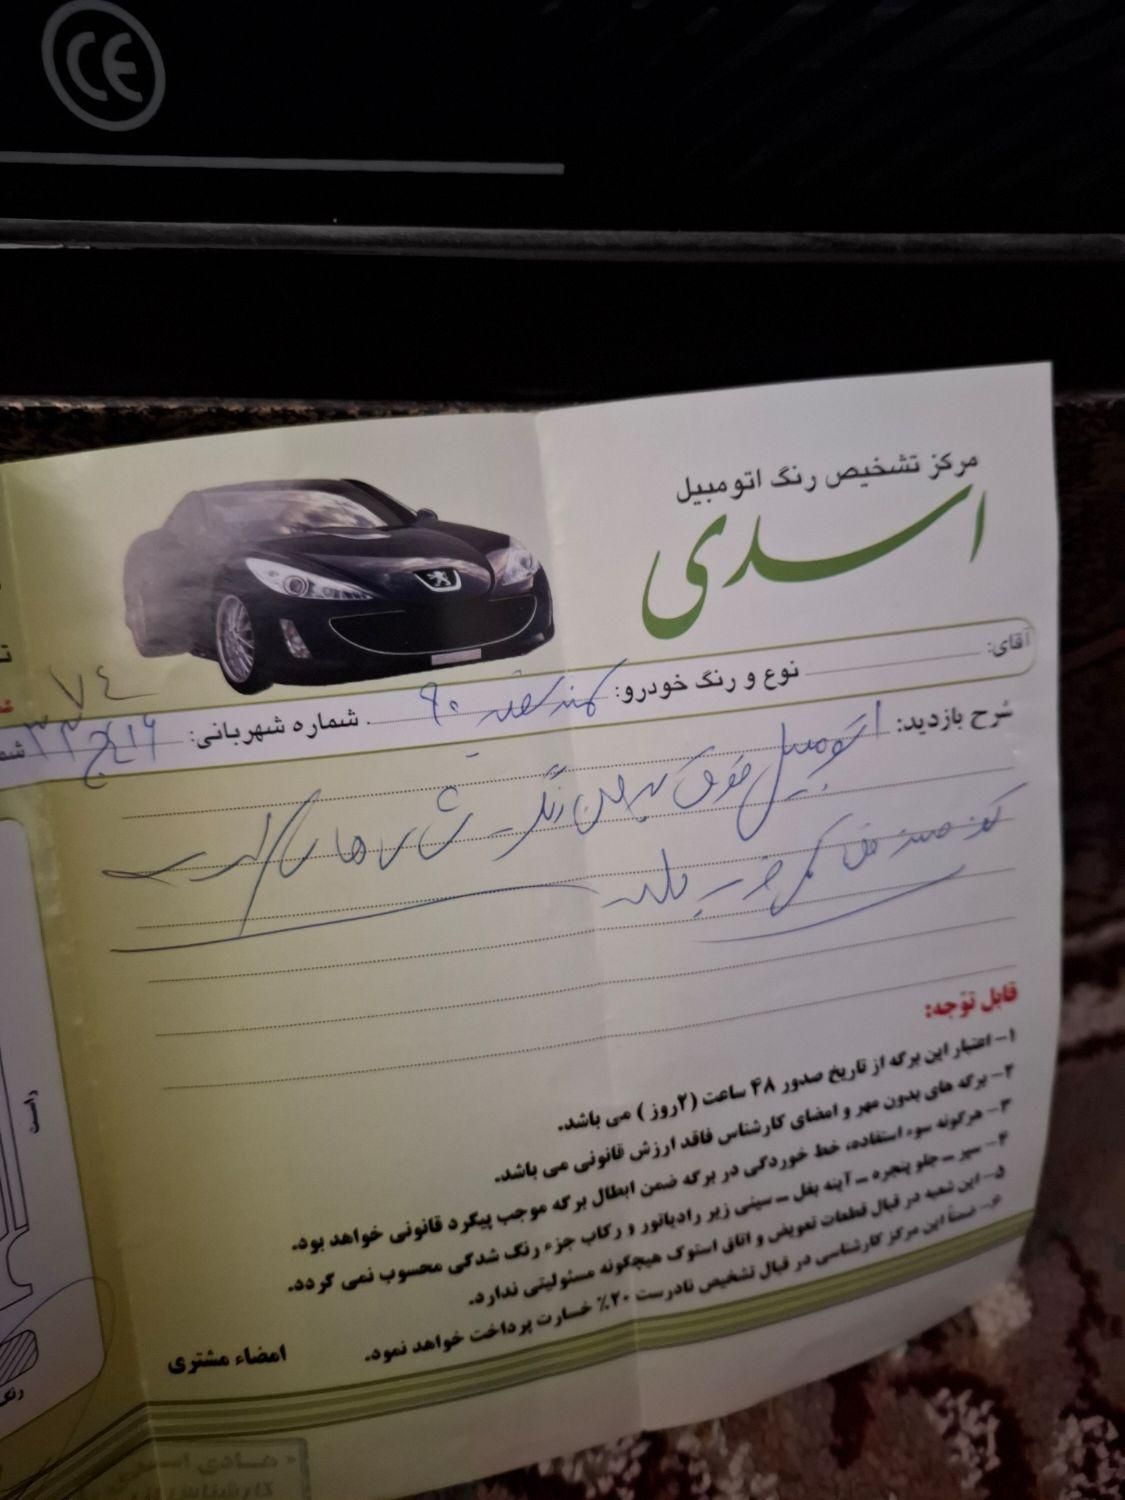 CE
مرکز تشخیص رنگ اتومبیل
اسدی
آقای:
نوع و رنگ خودرو: سمند سفید ۹۰ شماره شهربانی:
۷۴
شرح بازدید: اتومبیل فوق بدون رنگ
قابل توّجه:
۱- اعتبار این برگه از تاریخ صدور ۴۸ ساعت (۲روز) می باشد.
۲- برگه های بدون مهر و امضای کارشناس فاقد ارزش قانونی می باشد.
۳- هرگونه سوء استفاده، خط خوردگی در برگه ضمن ابطال برگه موجب پیگرد قانونی خواهد بود.
۴- سپر ــ جلو پنجره ــ آینه بغل ــ سینی زیر رادیاتور و رکاب جزء رنگ شدگی محسوب نمی گردد.
۵- این شعبه در قبال قطعات تعویض و اتاق استوک هیچگونه مسئولیتی ندارد.
۶- ضمناً این مرکز کارشناسی در قبال تشخیص نادرست ۲۰٪ خسارت پرداخت خواهد نمود.
امضاء مشتری
راست
رنگ